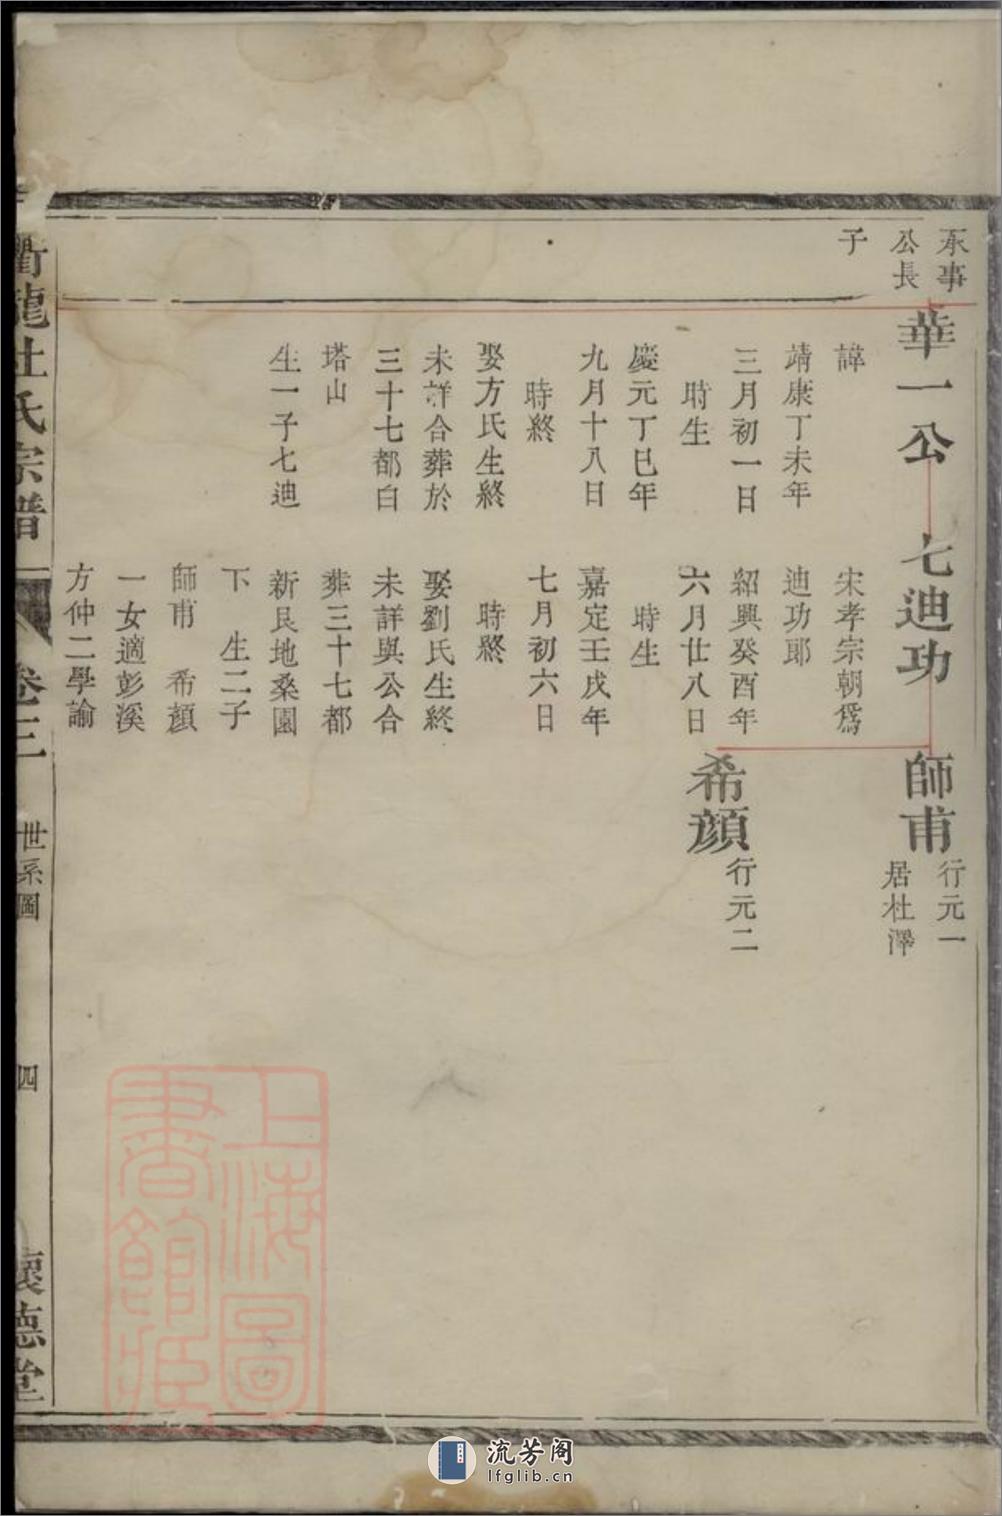 承事
公長
子
華一公
諱
靖康丁未年
三月初一日
時生
慶元丁巳年
九月十八日
時終
娶方氏生終
未詳合葬於
三十七都白
塔山
生一子七迪
七迪功
宋孝宗朝爲
迪功郎
紹興癸酉年
六月廿八日
時生
嘉定壬戌年
七月初六日
時終
娶劉氏生終
未詳與公合
葬三十七都
新艮地桑園
下 生二子
師甫 希顏
一女適彭溪
方仲二學諭
師甫
行元一
居杜澤
希顏
行元二
衢龍杜氏宗譜
卷三
世系圖
四
懷德堂
上海圖
書館藏
流芳阁
lfglib.cn